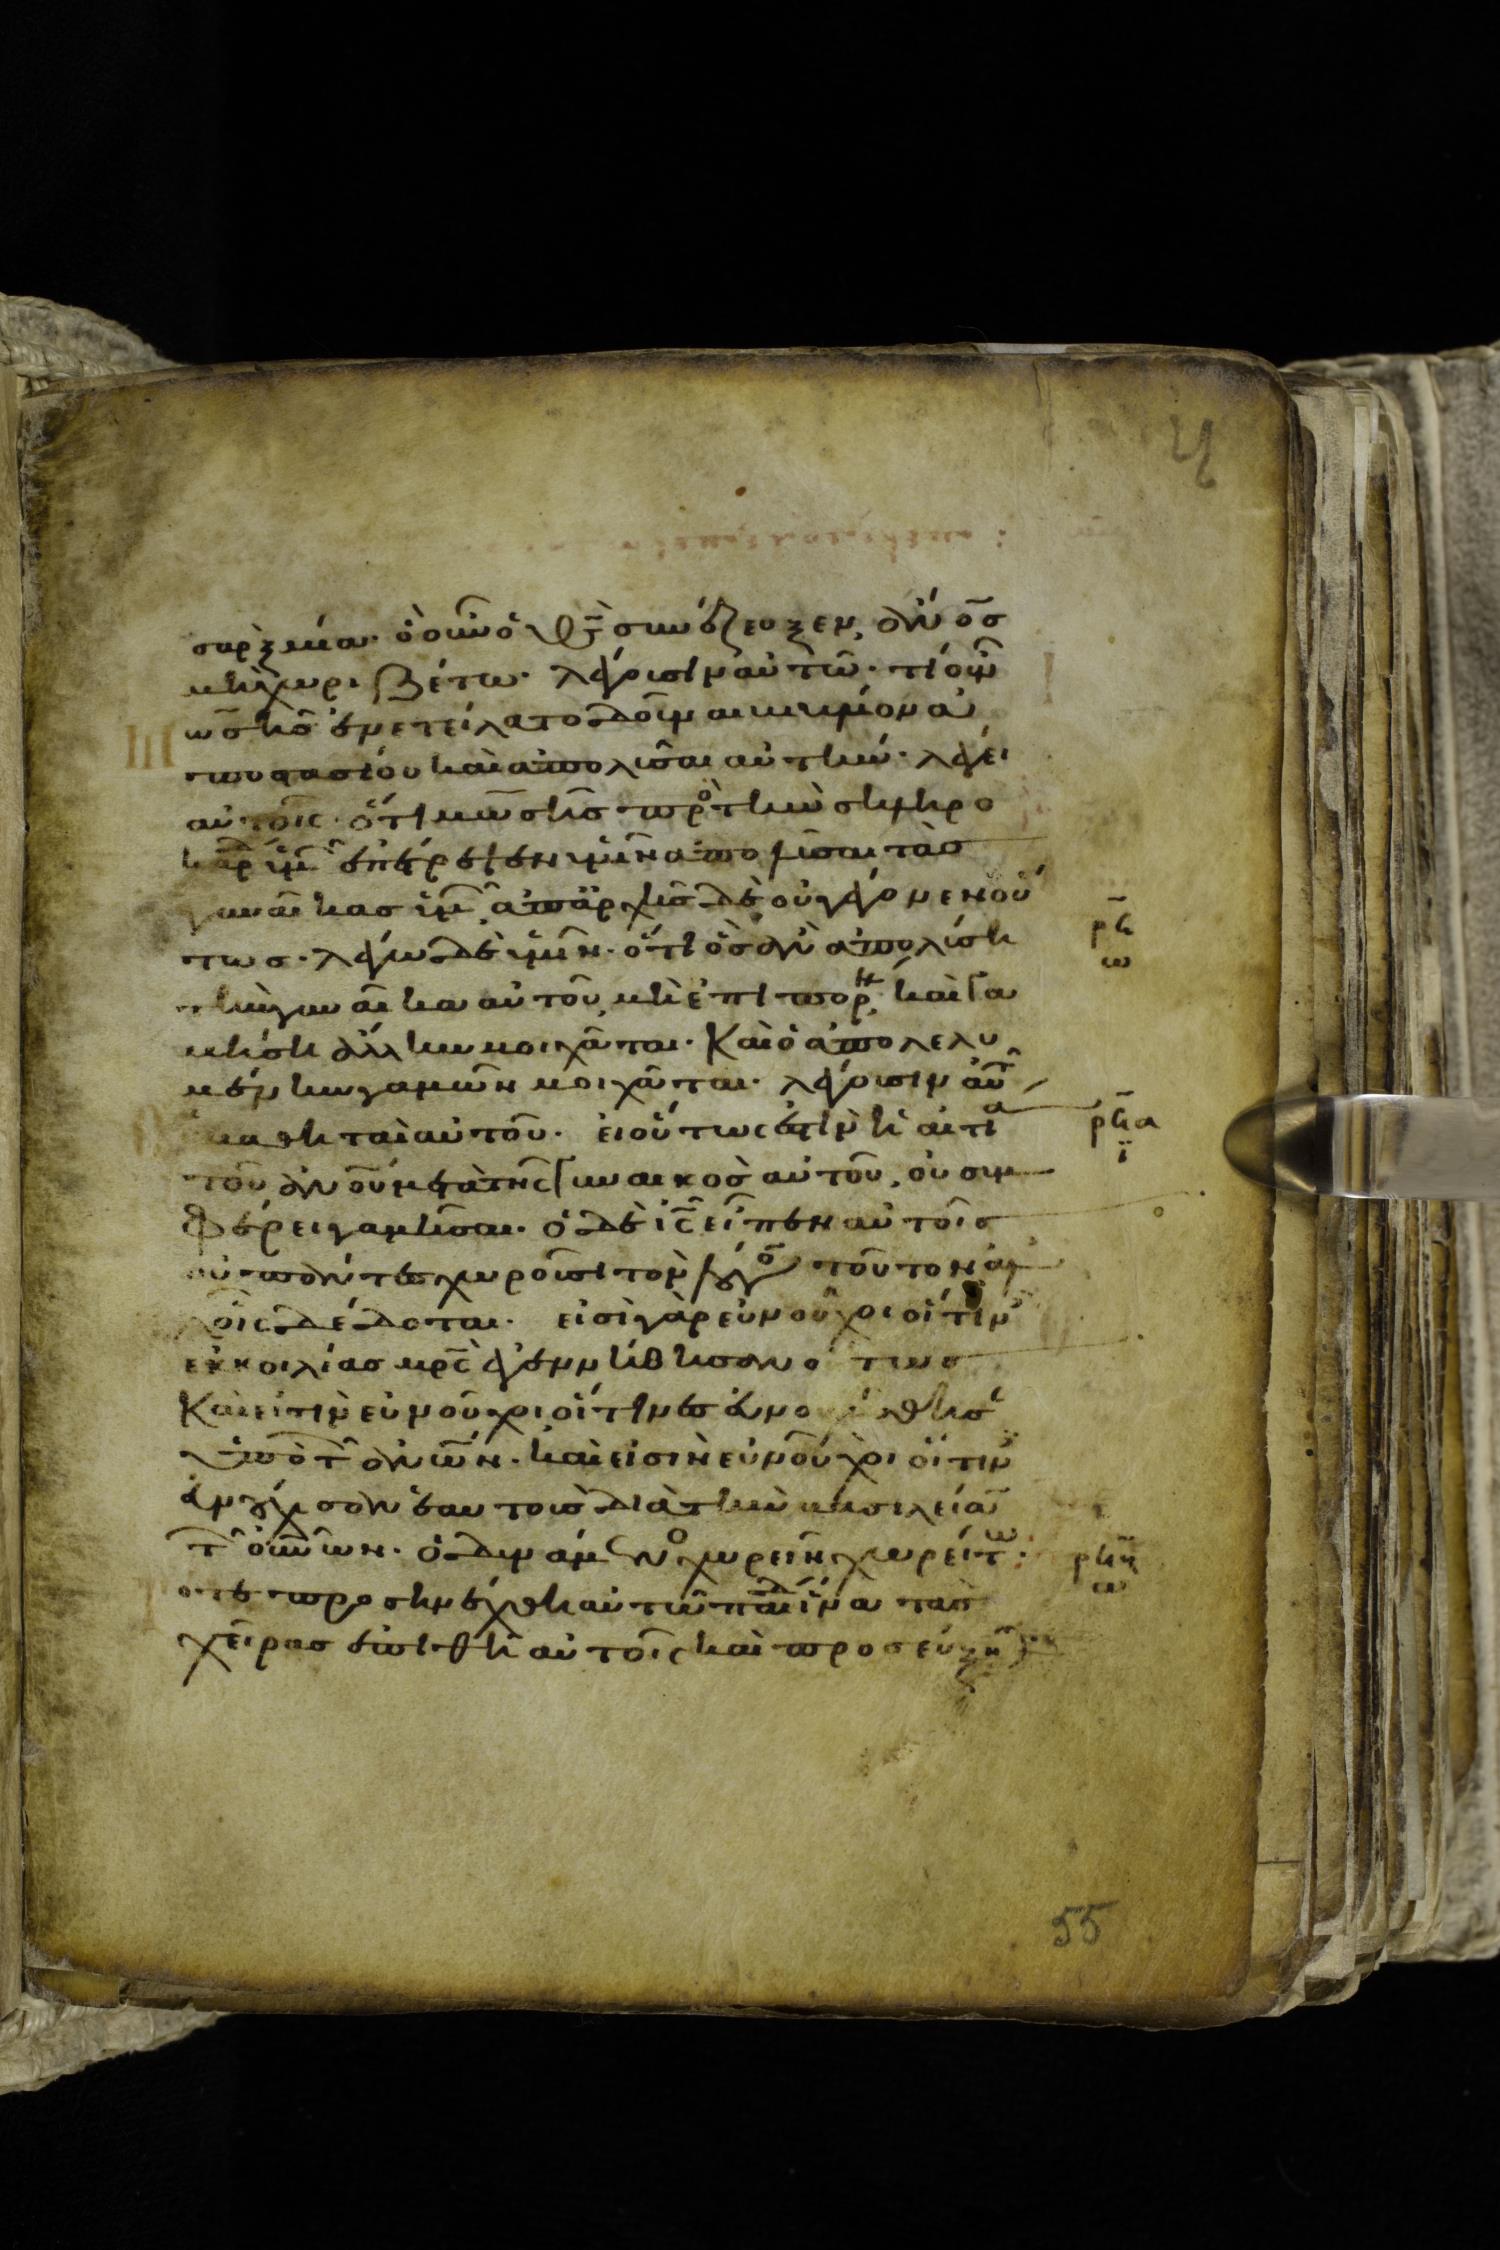 σαρξ μία· ὁ οὖν ὁ θ̅ς̅ συνέζευξεν, ἀν̅ο̅σ
μὴ χωριζέτω· λέγουσιν αὐτῶ· τί οὖν
μωσῆσ ἐνετείλατο δοῦναι βιβλίον ἀ
ποστασίου καὶ ἀπολῦσαι αὐτήν· λέγει
αὐτοῖς· ὅτι μωσῆσ πρὸσ τὴν σκληρο
καρ ὑμ ἐπέτρεψεν ὑμῖν ἀπολῦσαι τὰσ
γυναῖκασ ὑμ ἀπαρχῆσ δὲ οὐ γέγονεν οὕ
τωσ· λέγω δὲ ὑμῖν· ὅτι ὃσ ἂν ἀπολύση
τὴν γυναῖκα αὐτοῦ, μὴ ἐπὶ πορν καὶ γα
μήση ἄλλην μοιχᾶται· Καὶ ὁ ἀπολελυ
μένην γαμῶν μοιχᾶται· λέγουσιν αὐτ
μαθηταὶ αὐτοῦ· εἰ οὕτως ἐστὶν ἡ αἰτία
τοῦ ἀν̅ο̅υ μετὰ τῆς γυναικὸσ αὐτοῦ, οὐ συμ
φέρει γαμῆσαι· ὁ δὲ ι̅ς̅ εἶπεν αὐτοῖσ
οὐ πάντεσ χωροῦσι τὸν λόγον τοῦτον ἀλ
λοῖς δέδοται· εἰσὶ γὰρ εὐνοῦχοι οἵτιν
ἐκ κοιλίασ μ̅ρ̅ς̅ ἐγεννήθησαν ο τωσ
Καὶ εἰσιν εὐνοῦχοι οἵτινεσ εὐνο ίσθησ
ὑπὸ τ ἀν̅ων· καὶ εἰσιν εὐνοῦχοι οἵτιν
εὐνούχισαν ἑαυτοὺσ διὰ τὴν βασιλείαν
τ οὐ̅νων· ὁ δυνάμενοσ χωρεῖν χωρείτω·
ότε προσηνέχθη αὐτῶ παιδ ἵνα τὰσ
χεῖρασ ἐπιθῆ αὐτοῖς καὶ προσεύξη
ρ̅ϟ
ω
ρ̅ϟα
ϊ
55